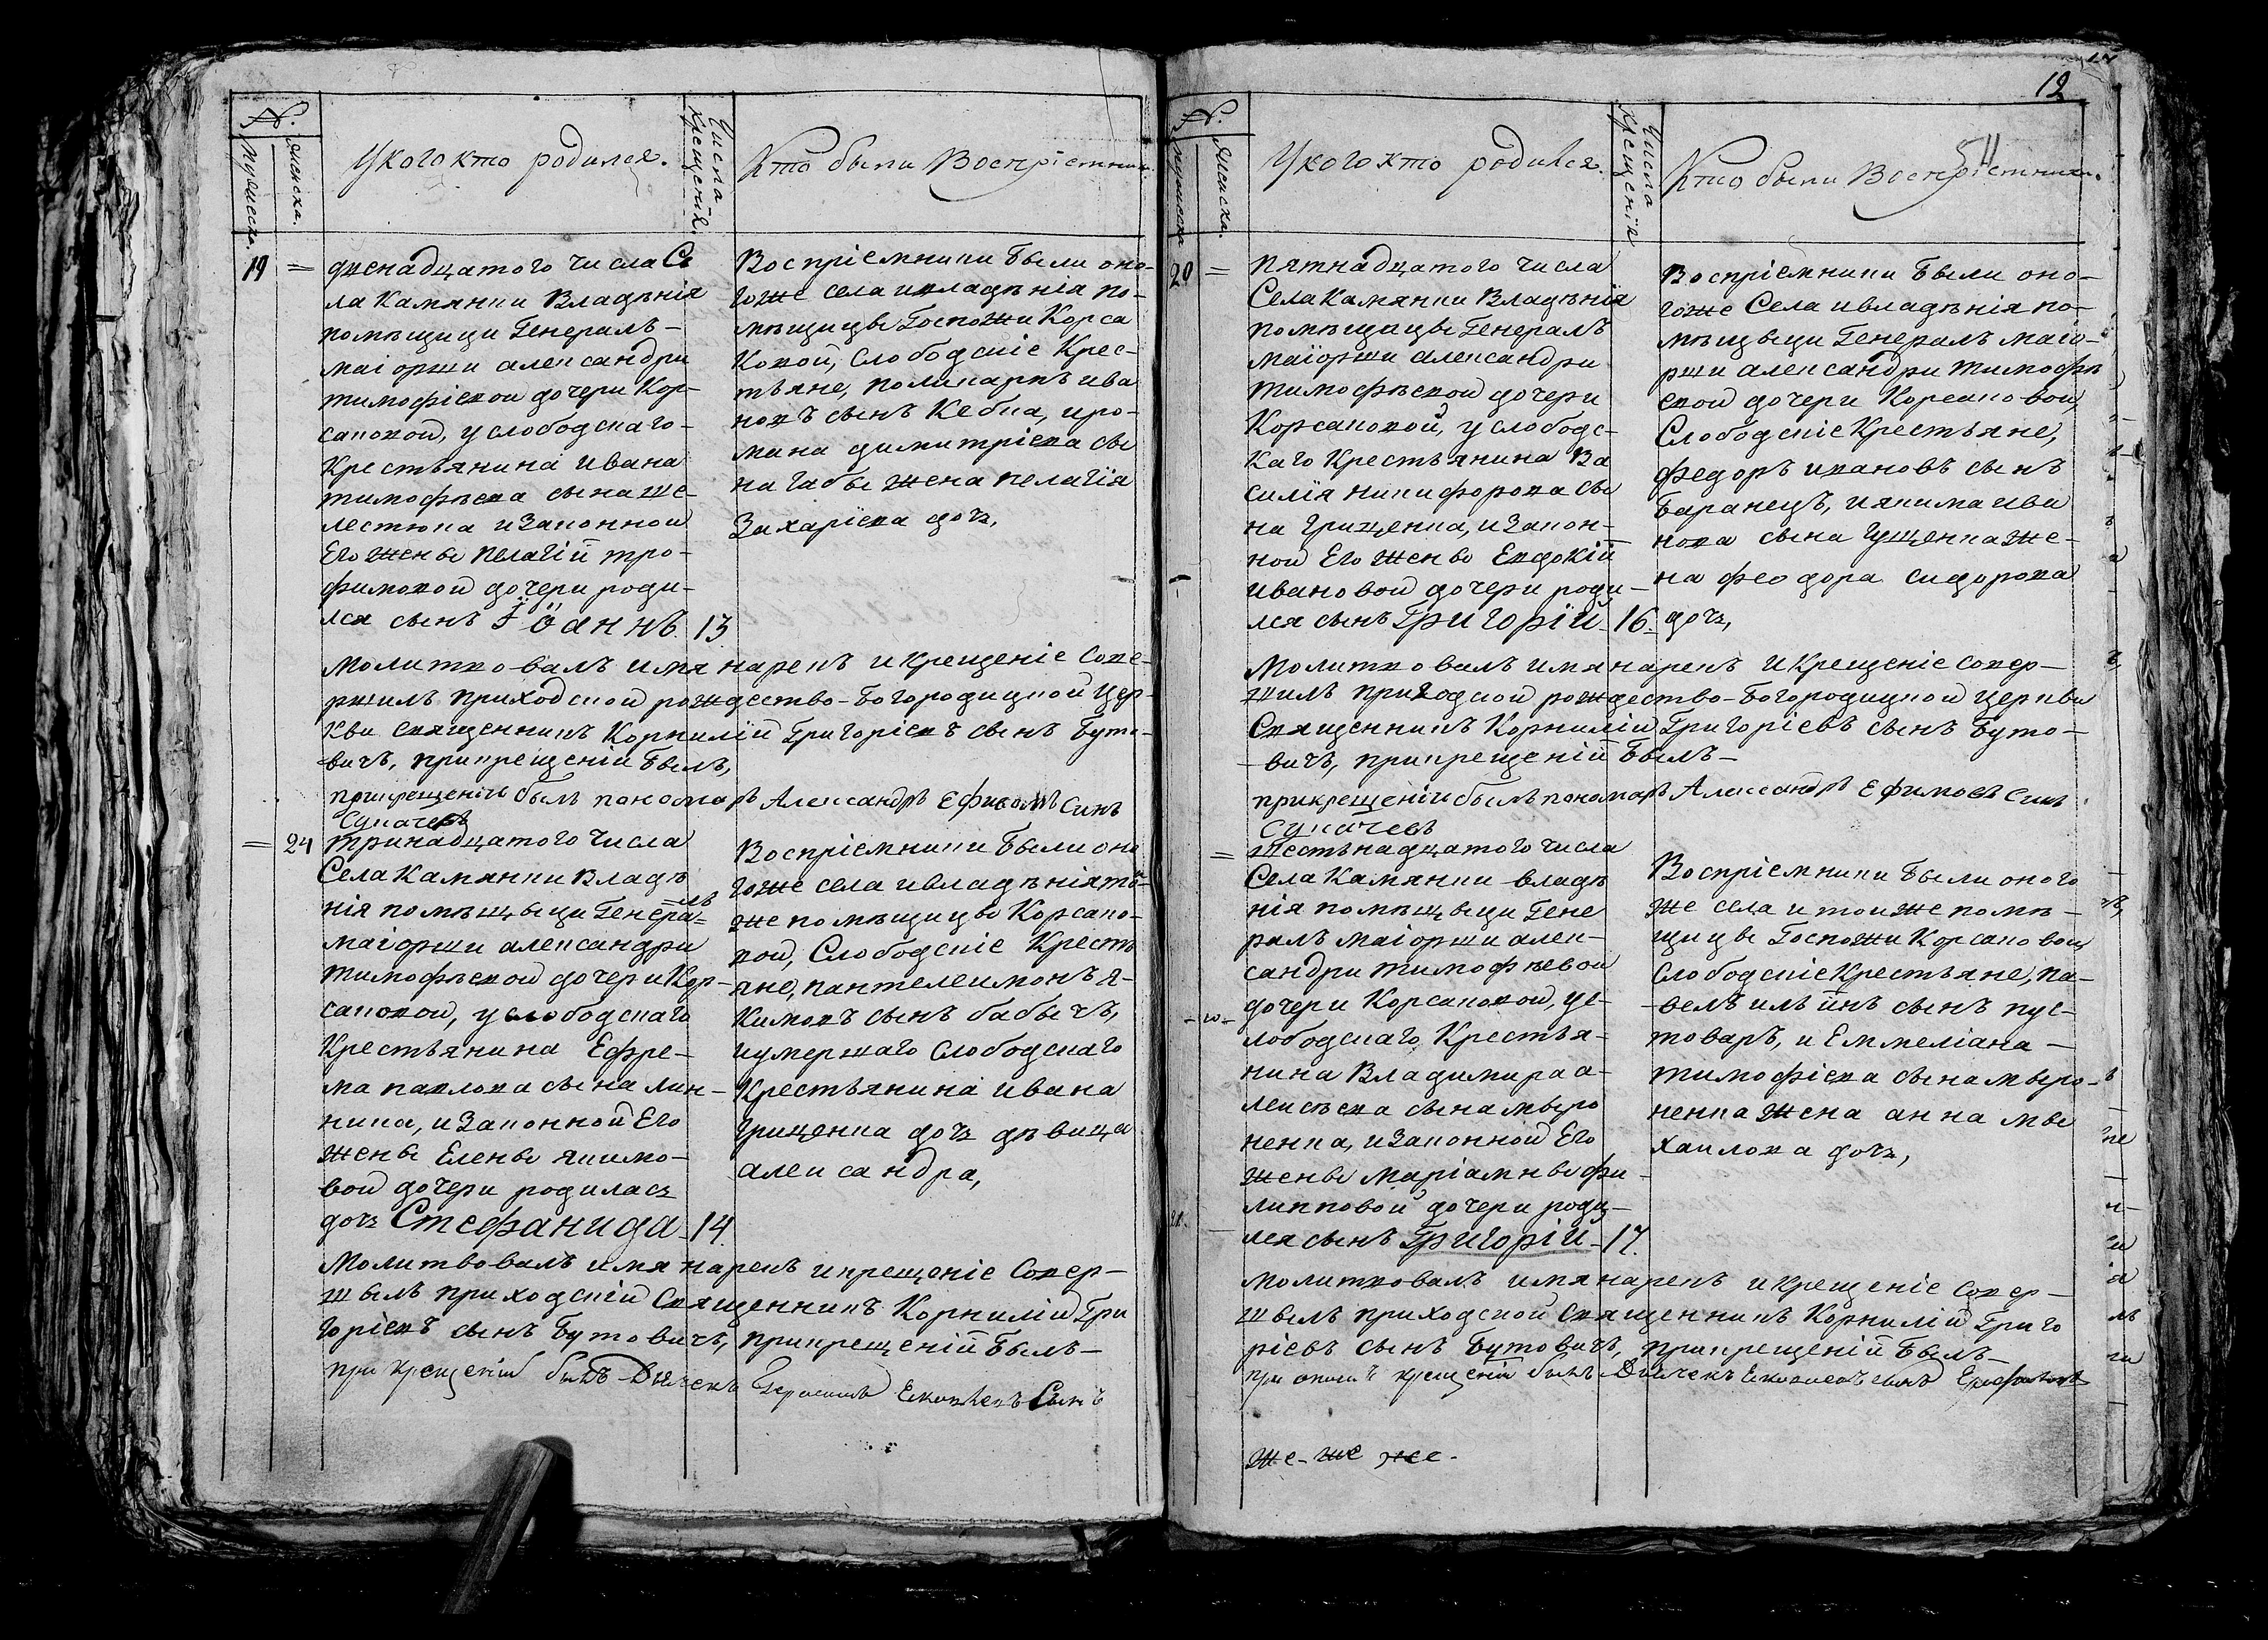 №.
мужеска.
женска.
У кого кто родился.
Числа крещенія.
Кто были Воспріемники.
19 = двенадцатого числа Се
ла Камянки Владѣнія
помѣщици Генералъ-
маіорши александри
тимофіевои дочери Кор-
саковой, у слободскаго-
Крестьянина ивана
тимофѣева сына ше-
лестюка и Законнои
Его жены Пелагіи тро-
фимовои дочери роди-
лся сынъ Іоаннъ. 13
Воспріемники были оно-
гоже села ивладѣнія по-
мѣщицы Госпожи Корса
Ковой, Слободскіе Крес-
тьяне, поликарпъ ива
новъ сынъ Кебка, иро-
мана димитріева сы
на габы жена пелагія
Захаріева дочь,
молитвовалъ имя нарекъ и Крещеніе Сове-
ршилъ приходской рождество-Богородицкой Цер-
кви священникъ Корнилій Григоріевъ сынъ Буто-
вичъ, прикрещеніи былъ,
прикрещеніи былъ пономаръ Александръ Ефимовъ Синъ
Сукачевъ
= 24 тринадцатого числа
Села Камянки Владѣ
нія помѣщыци Генералъ
маіорши александри
тимофѣевой дочери Кор-
саковой, у слободскаго
Крестьянина Ефре-
ма павлова сына лин-
ника, и Законной Его
жены Елены якимо-
вой дочери родилась
дочь Стефанида 14.
Воспріемники были оно
гоже села ивладѣнія той-
же помѣщицы Корсако-
вой, Слободскіе Кресть
яне, пантелеимонъ я-
кимовъ сынъ бабычъ,
иумершаго Слободскаго
Крестьянина ивана
грищенка дочь дѣвица
александра,
Молитвовалъ имя нарекъ и крещеніе Совер-
шылъ приходскій Священникъ Корнилій Гри
горіевъ сынъ Бутовичъ, прикрещеніи былъ-
при крещеніи былъ Дьячекъ Герасимъ Сынъ
12
54
№.
мужеска
женска.
У кого кто родился.
Числа крещенія
Кто были Воспріемники.
20 = пятнадцатого числа
Села Камянки Владѣнія
помѣщицы Генералъ
маіорши александри
тимофѣевой дочери
Корсаковой, у слободс-
каго Крестьянина Ва
силія никифорова сы
на грищенка, и Закон-
ной Его жены Евдокіи
ивановой дочери роди-
лся сынъ Григорій 16.
Воспріемники были оно-
гоже Села ивладѣнія по-
мѣщыци Генералъ маіо-
рши александри тимофѣ
евой дочери Корсаковой,
Слободскіе Крестьяне,
федоръ ивановъ сынъ
Баранецъ, иякима ива
нова сына гущенка же-
на феодора сидорова
дочь,
Молитвовалъ имя нарекъ и Крещеніе совер-
шилъ приходской рождество-Богородицкой церкви
Священникъ Корнилій Григоріевъ сынъ Буто-
вичъ, прикрещеніи былъ-
прикрещеніи былъ пономаръ Александръ Ефимовъ Синъ
Сукачевъ
= Шестьнадцатого числа
Села Камянки владѣ
нія помѣщыци Гене
ралъ маіорши алек-
сандри тимофѣевои
дочери Корсаковой, ус-
лободскаго Крестья-
нина Владимира а-
лексѣева сына мыро
ненка, и Законной Его
жены Маріамны фи-
липповой дочери роди-
лся сынъ Григорій 17.
Воспріемники были оного
же села и тоиже помѣ-
щицы Госпожи Корсаковои
Слободскіе Крестьяне, Па-
велъ ильинъ сынъ пус-
товаръ, и Еммеліана
тимофіева сына мыро-
ненка жена анна мы
хаилова дочь,
молитвовалъ имя нарекъ и Крещеніе совер-
шылъ приходской Священникъ Корнилій Григо
ріевъ сынъ Бутовичъ, прикрещеніи былъ-
при крещеніи былъ Дьячекъ
же-же же.